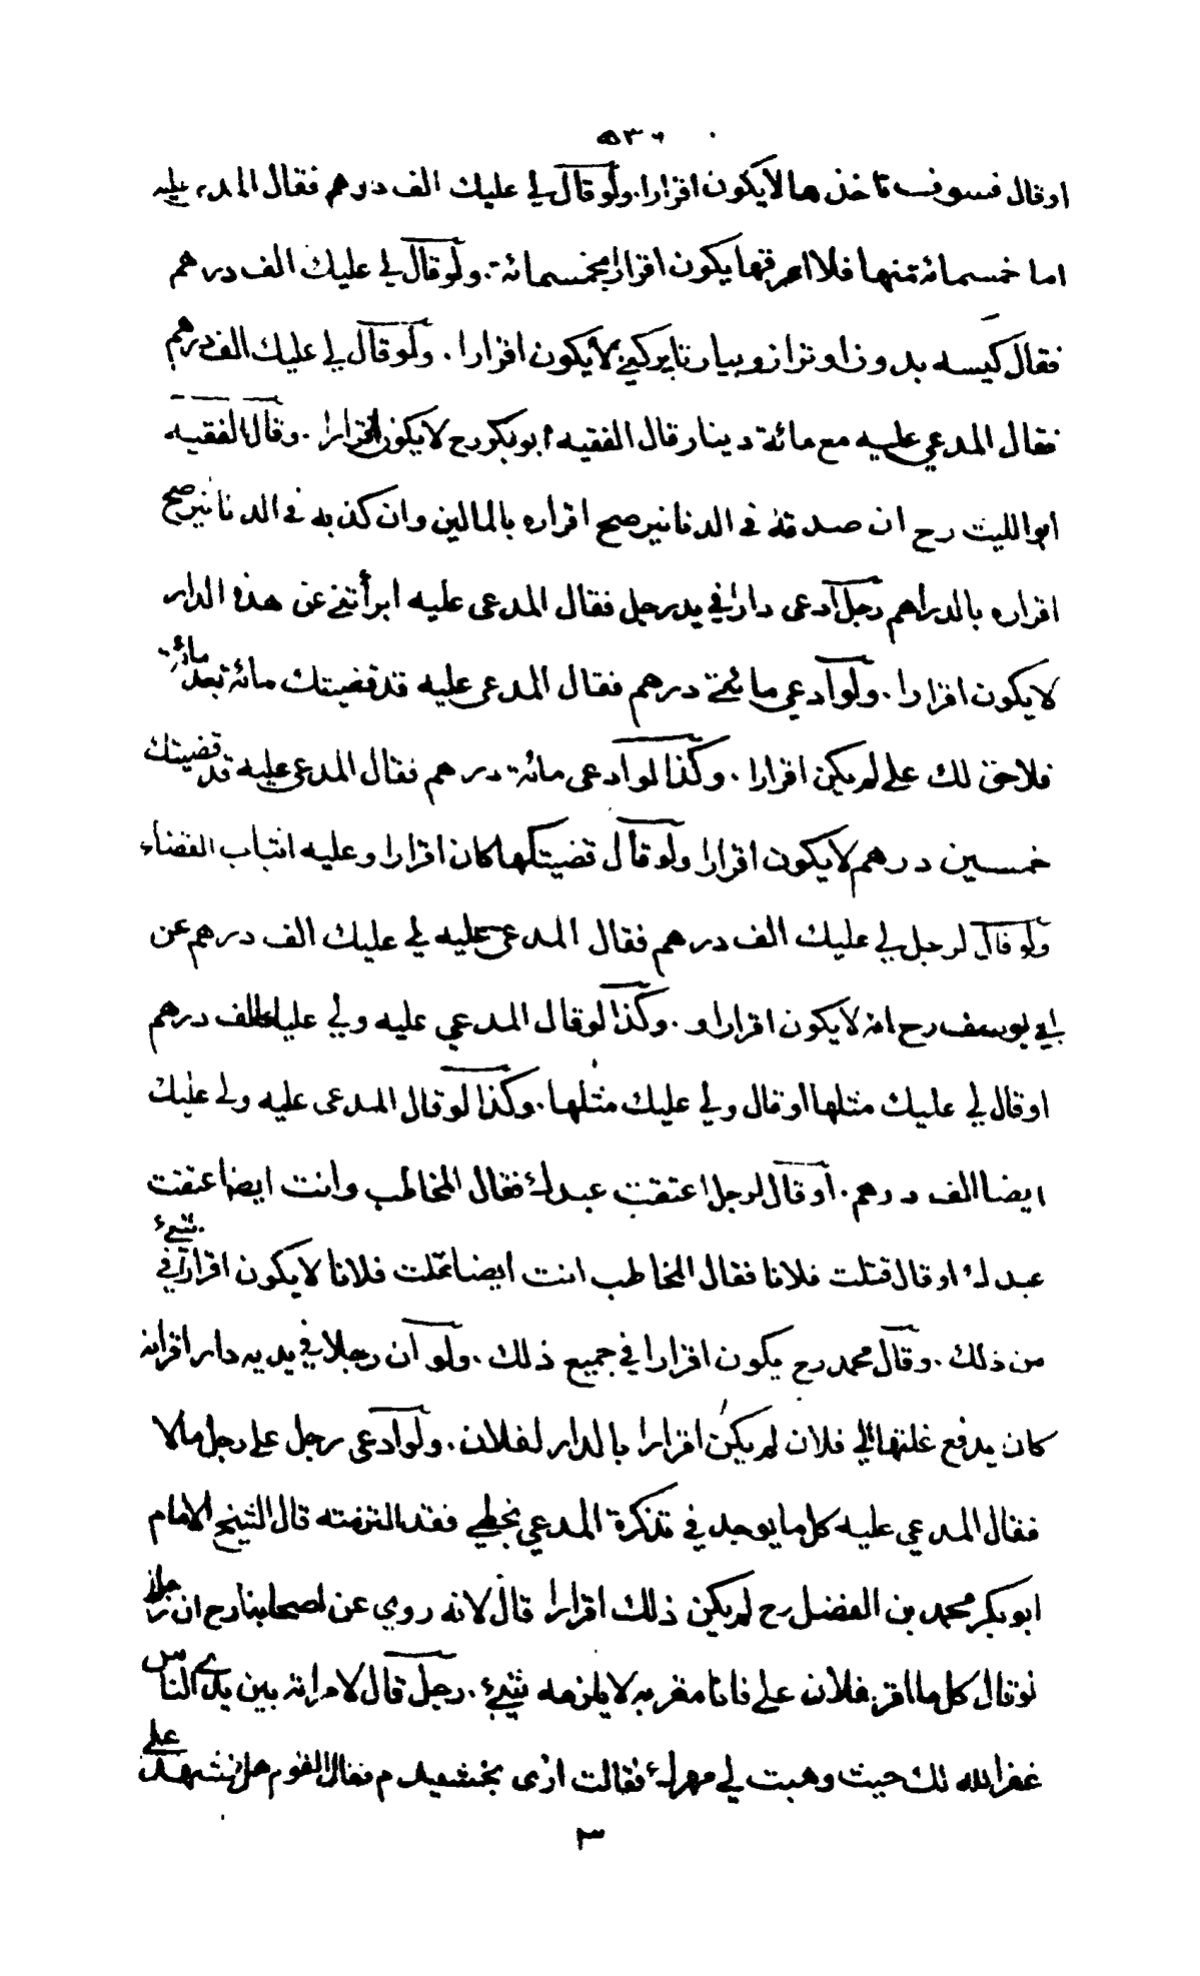 ٥٣٦
اوقال فسوف تاخذها لايكون اقرارا. ولوقال لي عليك الف درهم فقال المدعى عليه
اما خمسمائة منها فلا اعرفها يكون اقرارا بخمسمائة. ولوقال لي عليك الف درهم
فقال كيسه بدوز او ترازو بيار تا بركيز لايكون اقرارا. ولوقال لي عليك الف درهم
فقال المدعي عليه مع مائة دينار قال الفقيه ابوبكر رح لايكون اقرارا. وقال الفقيه
ابوالليث رح ان صدقه في الدنانير صح اقراره بالمالين وان كذبه في الدنانير صح
اقراره بالدراهم رجل ادعى دارا في يد رجل فقال المدعى عليه ابرأتني عن هذه الدار
لايكون اقرارا. ولو ادعي مائتي درهم فقال المدعى عليه قد قضيتك مائة بعد مائة
فلاحق لك علي لم يكن اقرارا. وكذا لو ادعى مائة درهم فقال المدعى عليه قد قضيتك
خمسين درهم لايكون اقرارا ولوقال قضيتكها كان اقرارا وعليه اثبات القضاء
ولوقال لرجل لي عليك الف درهم فقال المدعى عليه لي عليك الف درهم عن
ابي يوسف رح انه لايكون اقرارا و. وكذا لوقال المدعي عليه ولي عليك الف درهم
اوقال لي عليك مثلها اوقال ولي عليك مثلها. وكذا لوقال المدعى عليه ولي عليك
ايضا الف درهم. اوقال لرجل اعتقت عبدك فقال المخاطب وانت ايضا عتقت
عبدك اوقال قتلت فلانا فقال المخاطب انت ايضا قتلت فلانا لايكون اقرارا في شيء
من ذلك. وقال محمد رح يكون اقرارا في جميع ذلك. ولو ان رجلا في يديه دار اقرانه
كان يدفع غلتها الي فلان لم يكن اقرارا بالدار لفلان. ولو ادعى رجل على رجل مالا
فقال المدعي عليه كل ما يوجد في تذكرة المدعي بخطي فقد التزمته قال الشيخ الامام
ابوبكر محمد بن الفضل رح لم يكن ذلك اقرارا قال لانه روي عن اصحابنا رح ان رجلا
لوقال كل ما اقر فلان علي فانا مقر به لايلزمه شيء. رجل قال لامراته بين يدي الناس
غفر الله لك حيث وهبت لي مهرك فقالت اري بخشيدم فقال القوم هل نشهد علي
٣